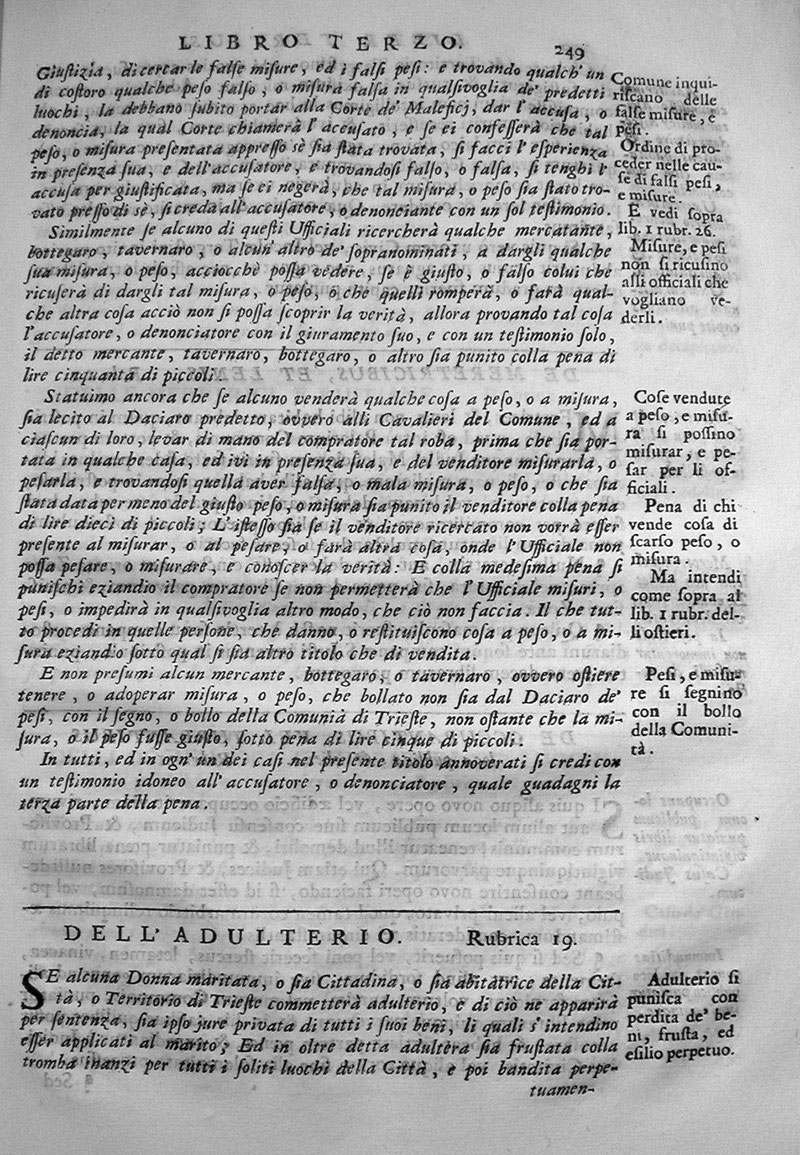 LIBRO TERZO.
249
Giuſtizia, di cercar le falſe miſure, ed i falſi peſi: e trovando qualch' un
di coſtoro qualche peſo falſo, o miſura falſa in qualſivoglia de' predetti
luochi, la debbano ſubito portar alla Corte de' Maleficj, dar l' accuſa, o
denoncia, la qual Corte chiamerà l' accuſato, e ſe ei confeſſerà che tal
peſo, o miſura preſentata appreſſo sè ſia ſtata trovata, ſi facci l' eſperienza
in preſenza ſua, e dell' accuſatore, e trovandoſi falſo, o falſa, ſi tenghi l'
accuſa per giuſtificata, ma ſe ei negerà, che tal miſura, o peſo ſia ſtato tro-
vato preſſo di sè, ſi creda all' accuſatore, o denonciante con un ſol teſtimonio.
Similmente ſe alcuno di queſti Ufficiali ricercherà qualche mercatante,
bottegaro, tavernaro, o alcun' altro de' ſopranominati, a dargli qualche
ſua miſura, o peſo, acciocchè poſſa vedere, ſe è giuſto, o falſo colui che
ricuſerà di dargli tal miſura, o peſo, o che quelli romperà, o farà qual-
che altra coſa acciò non ſi poſſa ſcoprir la verità, allora provando tal coſa
l' accuſatore, o denonciator con il giuramento ſuo, e con un teſtimonio ſolo,
il detto mercante, tavernaro, bottegaro, o altro ſia punito colla pena di
lire cinquanta di piccoli.
Statuimo ancora che ſe alcuno venderà qualche coſa a peſo, o a miſura,
ſia lecito al Daciaro predetto, ovvero alli Cavalieri del Comune, ed a
ciaſcun di loro, levar di mano del compratore tal roba, prima che ſia por-
tata in qualche caſa, ed ivi in preſenza ſua, e del venditore miſurarla, o
peſarla, e trovandoſi quella aver falſa, o mala miſura, o peſo, o che ſia
ſtata data per meno del giuſto peſo, o miſura ſia punito il venditore colla pena
di lire dieci di piccoli; L' iſteſſo ſia ſe il venditore ricercato non vorrà eſſer
preſente al miſurar, o al peſare, o farà altra coſa, onde l' Ufficiale non
poſſa peſare, o miſurare, e conoſcer la verità: E colla medeſima pena ſi
puniſchi eziandio il compratore ſe non permetterà che l' Ufficiale miſuri, o
peſi, o impedirà in qualſivoglia altro modo, che ciò non faccia. Il che tut-
to procedi in quelle perſone, che danno, o reſtituiſcono coſa a peſo, o a mi-
ſura eziandio ſotto qual ſi ſia altro titolo che di vendita.
E non preſumi alcun mercante, bottegaro, o tavernaro, ovvero oſtiere
tenere, o adoperar miſura, o peſo, che bollato non ſia dal Daciaro de'
peſi, con il ſegno, o bollo della Comunià di Trieſte, non oſtante che la mi-
ſura, o il peſo fuſſe giuſto, ſotto pena di lire cinque di piccoli.
In tutti, ed in ogn' un dei caſi nel preſente titolo annoverati ſi credi con
un teſtimonio idoneo all' accuſatore, o denonciatore, quale guadagni la
terza parte della pena.
Comune inqui-
riſcano delle
falſe miſure, e
peſi.
Ordine di pro-
ceder nelle cau-
ſe di falſi peſi,
e miſure.
E vedi ſopra
lib. 1 rubr. 26.
Miſure, e peſi
non ſi ricuſino
alli officiali che
vogliano ve-
derli.
Coſe vendute
a peſo, e miſu-
ra ſi poſſino
miſurar, e pe-
ſar per li of-
ficiali.
Pena di chi
vende coſa di
ſcarſo peſo, o
miſura.
Ma intendi
come ſopra al
lib. 1 rubr. del-
li oſtieri.
Peſi, e miſu-
re ſi ſegnino
con il bollo
della Comuni-
tà.
DELL' ADULTERIO. Rubrica 19.
SE alcuna Donna maritata, o ſia Cittadina, o ſia abitatrice della Cit-
tà, o Territorio di Trieſte commetterà adulterio, e di ciò ne apparirà
per ſentenza, ſia ipſo jure privata di tutti i ſuoi beni, li quali s' intendino
eſſer applicati al marito; Ed in oltre detta adultera ſia fruſtata colla
tromba inanzi per tutti i ſoliti luochi della Città, e poi bandita perpe-
tuamen-
Adulterio ſi
puniſca con
perdita de' be-
ni, fruſta, ed
eſilio perpetuo.